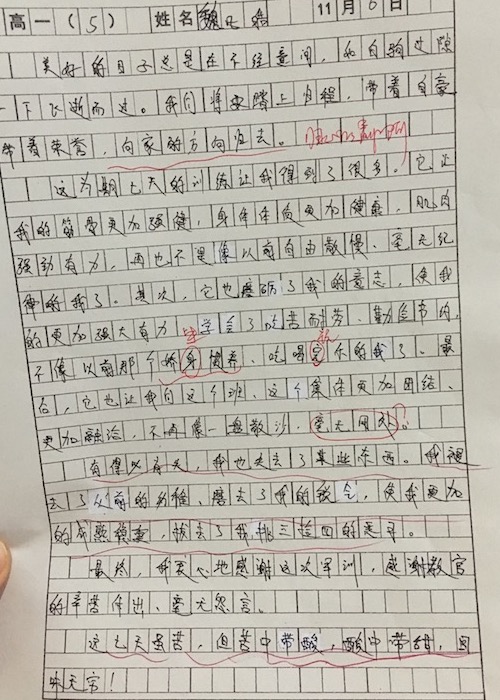 高一(5) 姓名魏 11月6日
美好的日子总是在不经意间，如白驹过隙
一下飞逝而过。我们将要踏上归程，带着自豪
带着荣誉，向家的方向归去。
这为期七天的训练让我得到了很多。它让
我的筋骨更加强健，身体体质更加健康，肌肉
强劲有力，再也不是像以前自由散慢、毫无纪
律的我了。其次，它也磨砺了我的意志，使我
的更加强大有力 学会了吃苦而劳、勤俭节约，
不像以前那个娇身惯养、吃喝完乐的我了。最
后，它也让我们这个班、这个集体更加团结、
更加融洽，不再像一盘散沙，毫无用处。
有得必有失，我也失去了某些东西。我褪
去了以前的幼稚、磨去了我的锐气，使我更加
的成熟稳重，拔去了我挑三捡四的恶习。
最终，我衷心地感谢这次军训，感谢教官
的辛苦付出、毫无怨言。
这七天虽苦，但苦中带酸，酸中带甜，回
味无穷！